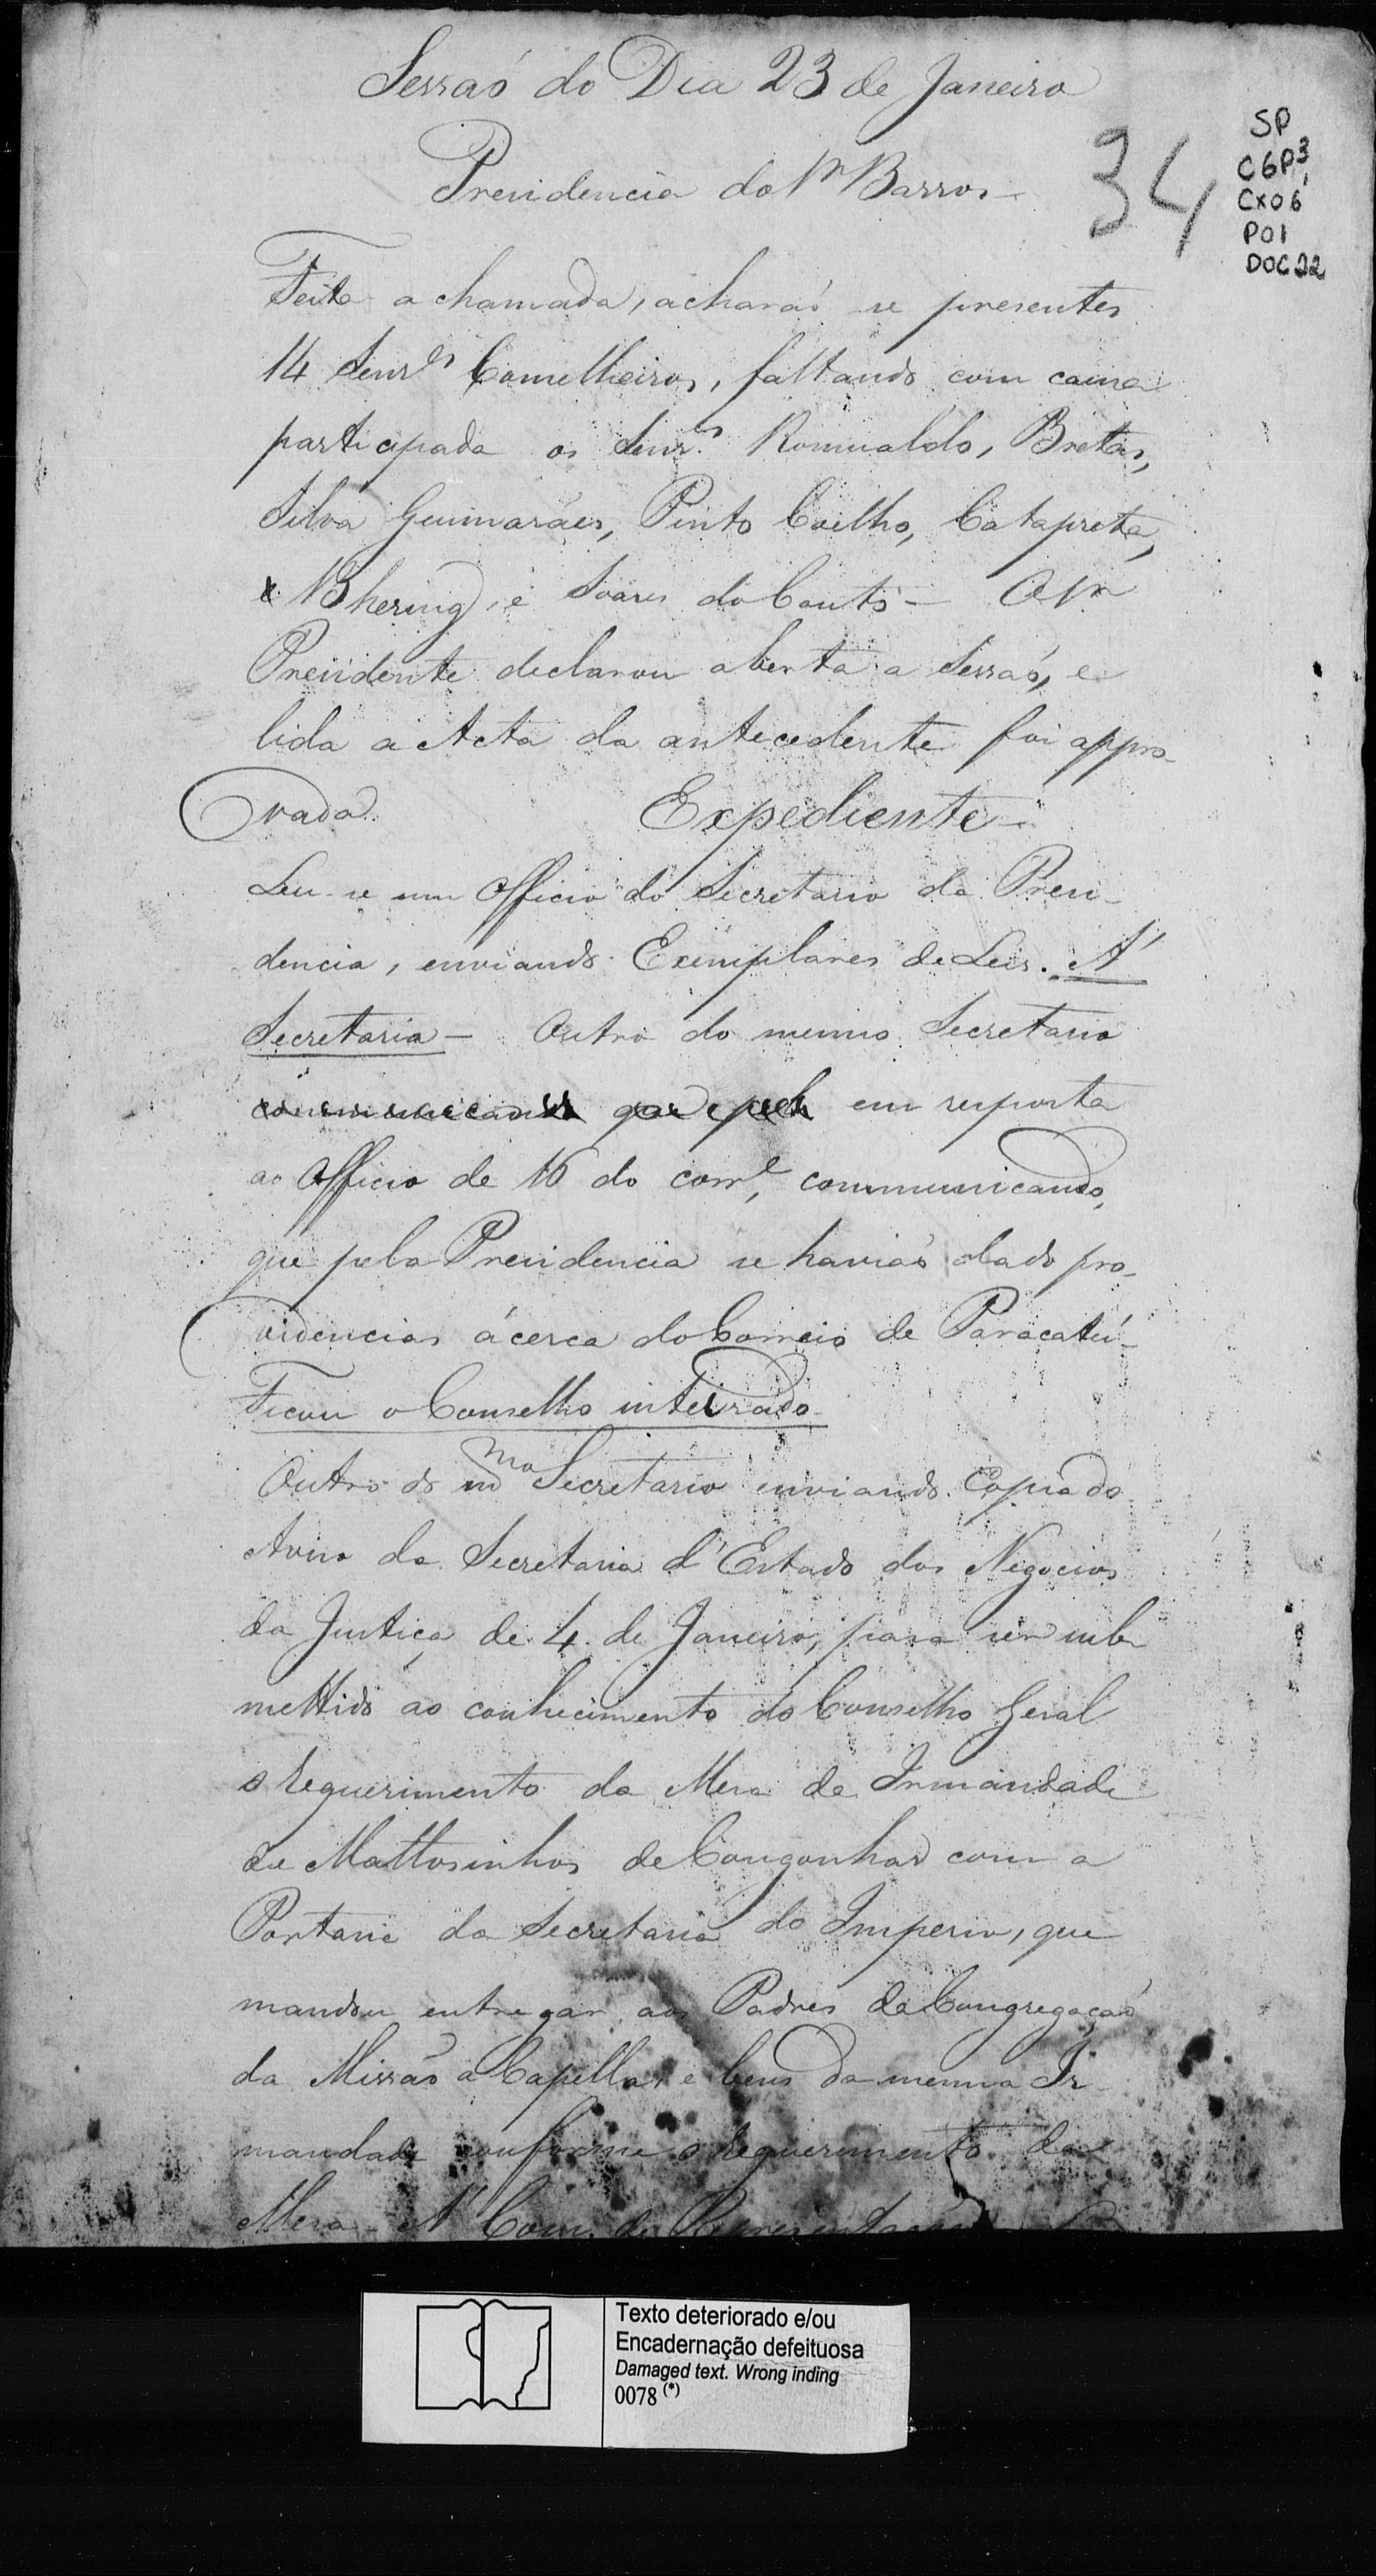 Sessaõ do Dia 23 de Janeiro
34
SP
C6P3,
CX06
P01
DOC 22
Presidencia do Sr Barros -
Feita a chamada, acharaõ se presentes
14 Senrs Conselheiros, faltando com causa
participada os Senrs. Romualdo, Bretas,
Silva Guimaraes, Pinto Coelho, Catapreta,
Bhering, e Soares do Couto - O Sr
Presidente declarou aberta a Sessaõ, e
lida a Acta da antecedente foi appro-
vada. Expediente -
Leu-se um Officio do Secretario da Presi-
dencia, enviando Exemplares de Leis. A'
Secretaria - Outro do mesmo Secretario
communicando que pela em resposta
ao Officio de 16 do corre, communicando,
que pela Presidencia se haviaõ dado pro-
videncias ácerca do Correio de Paracatú -
Ficou o Conselho inteirado -
Outro do mmo Secretario enviando Copia do
Aviso da Secretaria d'Estado dos Negocios
da Justiça de 4 de Janeiro, para ser sub
mettido ao conhecimento do Conselho Geral
o requerimento da Mesa da Irmandade
de Mattosinhos de Congonhas com a
Portaria da Secretaria do Imperio, que
mandou entregar aos Padres da Congregaçaõ
da Missaõ a Capella, e bens da mesma Ir-
mandade conforme o requerimento da
Mesa - A' Com. de Representações
Texto deteriorado e/ou
Encadernação defeituosa
Damaged text. Wrong inding
0078 (*)